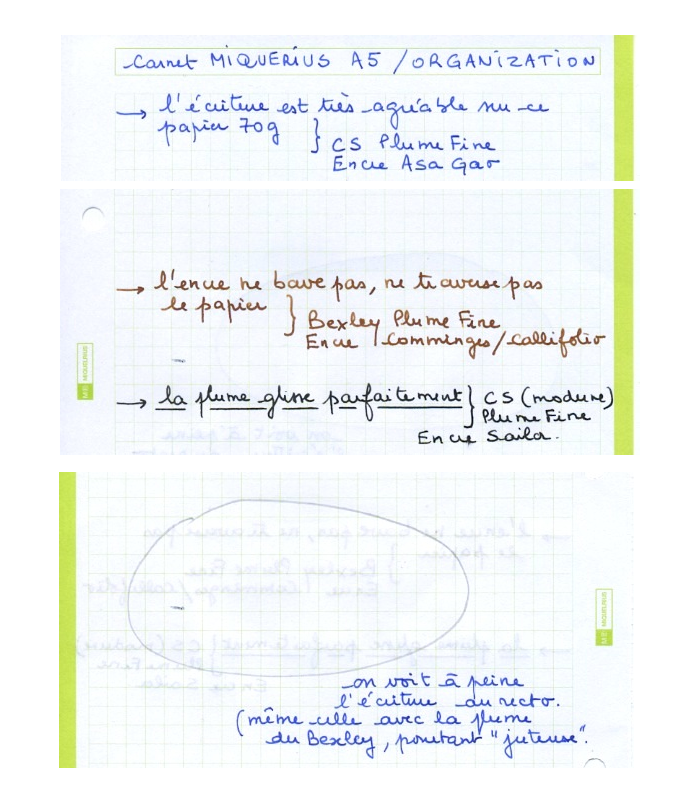 Carnet MIQUERIUS A5 / ORGANIZATION
→ l'écriture est très agréable sur ce
papier 70g } CS Plume Fine
Encre Asa Gao
→ l'encre ne bave pas, ne traverse pas
le papier } Bexley Plume Fine
Encre Comminges/Callifolio
MIQUELRIUS
→ la plume glisse parfaitement } CS (modune)
Plume Fine
Encre Saila.
MIQUELRIUS
on voit à peine
l'écriture au recto.
(même celle avec la plume
du Bexley, pourtant "juteuse".